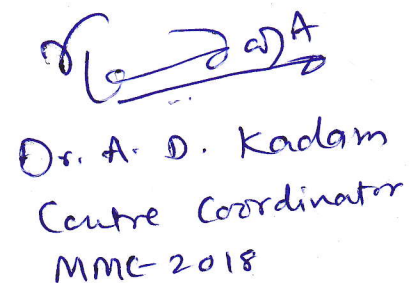 Dr. A. D. Kadam
Centre Coordinator
MMC-2018